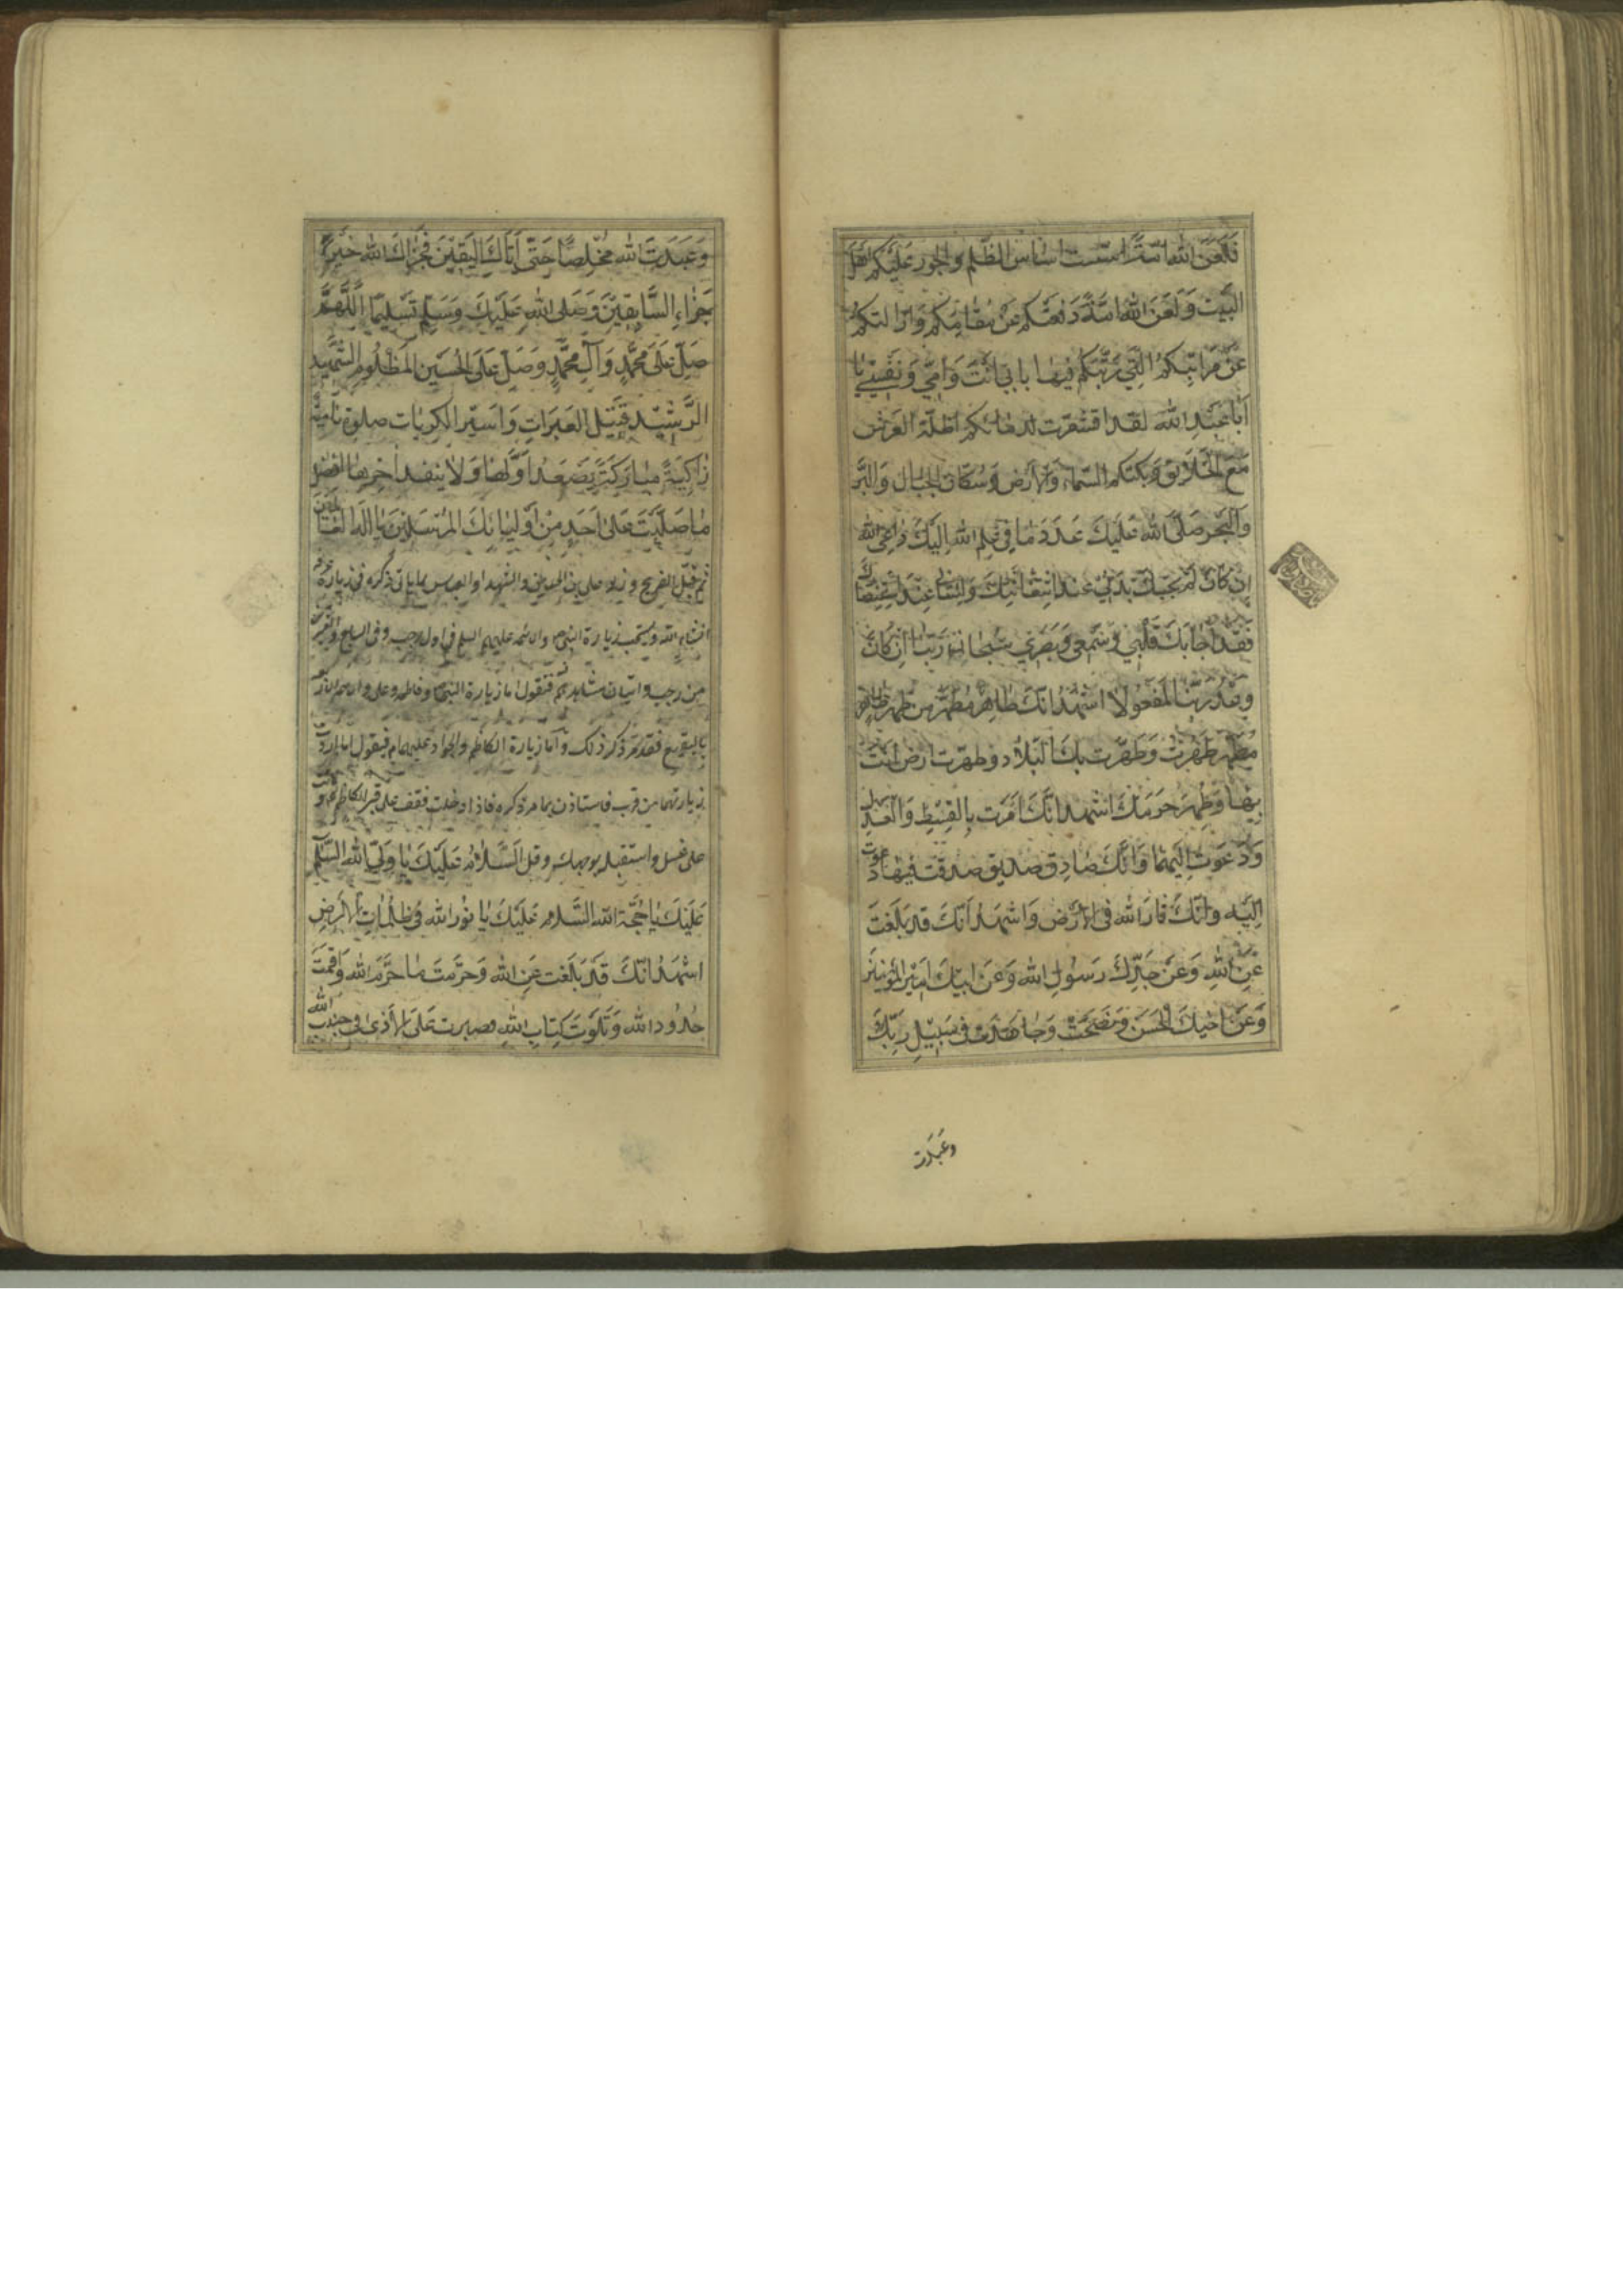 فَلَعَنَ اللهُ امّةً اسّست اساس الظّلم والجور عَلَيْكم اهل
البَيت وَلَعَنَ اللهُ امّةً دَفعَتكم عَنْ مقامِكم وَازالتكم
عَنْ مَراتِبكُم الّتي رَتَّبَكُم فيها بابي انتَ وَامّي وَنَفْسي يا
اَبا عَبدِ الله لقد اقشعرّت لدمائكم اظلّة العَرش
مَعَ الخَلايق وَبكتكم السّماء والارض وسُكّان الجبال وَالبَرّ
وَالبَحر صَلّى الله عَليكَ عَدَدَ ما في علم الله لَبّيكَ داعِىَ الله
اِن كانَ لَمْ يُجبكَ بَدَني عند استغاثتِكَ وَلِساني عِندَ استنصارك
فَقَد اَجابَكَ قَلبي وَسَمعي وَبَصَري سُبحانَ رَبّنا اِنْ كانَ
وعدُ رَبّنا لَمفعُولا اشهَدُ انّكَ طاهِرٌ مُطهّرٌ من طُهرٍ طاهرٍ
مُطَهَّرٍ طَهُرتَ وَطَهُرَت بِكَ البِلاد وطهرت ارض انتَ
بِها وَطَهُرَ حَرَمكَ اشهد انّكَ اَمَرت بِالقِسطِ وَالعَدل
وَدَعَوت اِلَيهِما وَانّكَ صادِق صدّيق صدقت فيما دعوت
اِلَيه وانّكَ ثارَ الله فى الارض وَاشهَدُ اَنّكَ قد بَلّغتَ
عَنِ اللهِ وَعَنْ جَدِّكَ رَسُولِ الله وَعَن ابيكَ امير المؤمنين
وَعَن اخيكَ الحَسَن وَنَصَحتَ وَجاهَدتَ فى سَبيلِ رَبِّكَ
وعَبَدت
وَعَبَدتَ الله مُخلِصًا حَتّى اَتاكَ اليَقينَ فَجَزاكَ الله خَيرَ
جَزاءِ السّابِقينَ وَصَلى الله عَلَيكَ وَسَلّم تَسليمًا اَللّهُمَّ
صَلّ عَلى مُحَمَّدٍ وَآلِ مُحَمَّدٍ وصَلّ عَلَى الحُسَين المَظلُومِ الشّهيد
الرَّشيد قَتيل العَبَراتِ وَاسير الكربات صلوة نامية
زاكِيَةً مُبارَكَةً يَصعَدُ اَوّلها وَلا ينفد اخرها افضل
ما صَلَّيتَ عَلى اَحَدٍ مِنْ اولِيائكَ المُرسَلينَ يا اله العالمين
ثم قبّل الضريح وزر على بن الحسين والشهدا والعباس بما ياتى ذكره فى زيارة عرفة
انشاء الله ويستحب زيارة النبى والائمة عليهم السلم فى اول رجب وفى السابع والعشرين
من رجب واتيان مشاهدهم فنقول اما زيارة النبى وفاطمه وعلى والائمة
بالبقيع فقد مرّ ذكر ذلك وامّا زيارة الكاظم والجواد عليهما م فنقول اذا اردت
زيارتهما من قرب فاستاذن بما مرّ ذكره فاذا دخلت فقف على قبر الكاظم وانت
على غسل واستقبله بوجهك وقل السّلام عَلَيكَ يا وَلىّ الله السّلم
عَلَيكَ يا حُجّة الله السّلام عَلَيكَ يا نُور الله فى ظلُماتِ الارضِ
اشهَدُ انّكَ قَد بَلّغت عَنِ الله وَحَرّمتَ ما حَرّم الله وَاقمتَ
حُدُود الله وَتَلَوت كِتابَ اللهِ وصبرت عَلَى الاَذى فى جنب الله